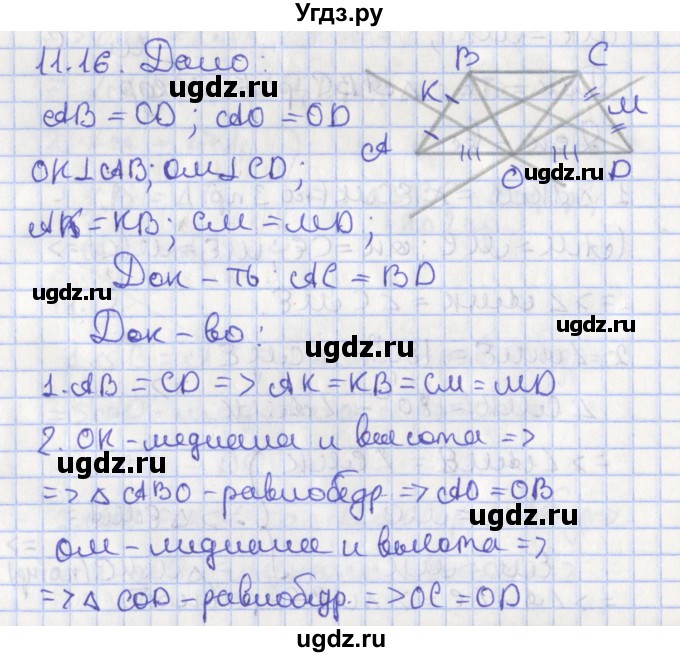 Угдз.ру
11.16. Дано:
AB = CD; AO = OD
OK⊥AB; OM⊥CD;
AK = KB; CM = MD;
Док-ть: AC = BD
Док-во:
1. AB = CD => AK = KB = CM = MD
2. OK - медиана и высота =>
=> △ ABO - равнобедр. => AO = OB
OM - медиана и высота =>
=> △ COD - равнобедр. => OC = OD
B
C
K
M
A
O
D
ugdz.ru
ugdz.ru
ugdz.ru
ugdz.ru
ugdz.ru
ugdz.ru
ugdz.ru
ugdz.ru
ugdz.ru